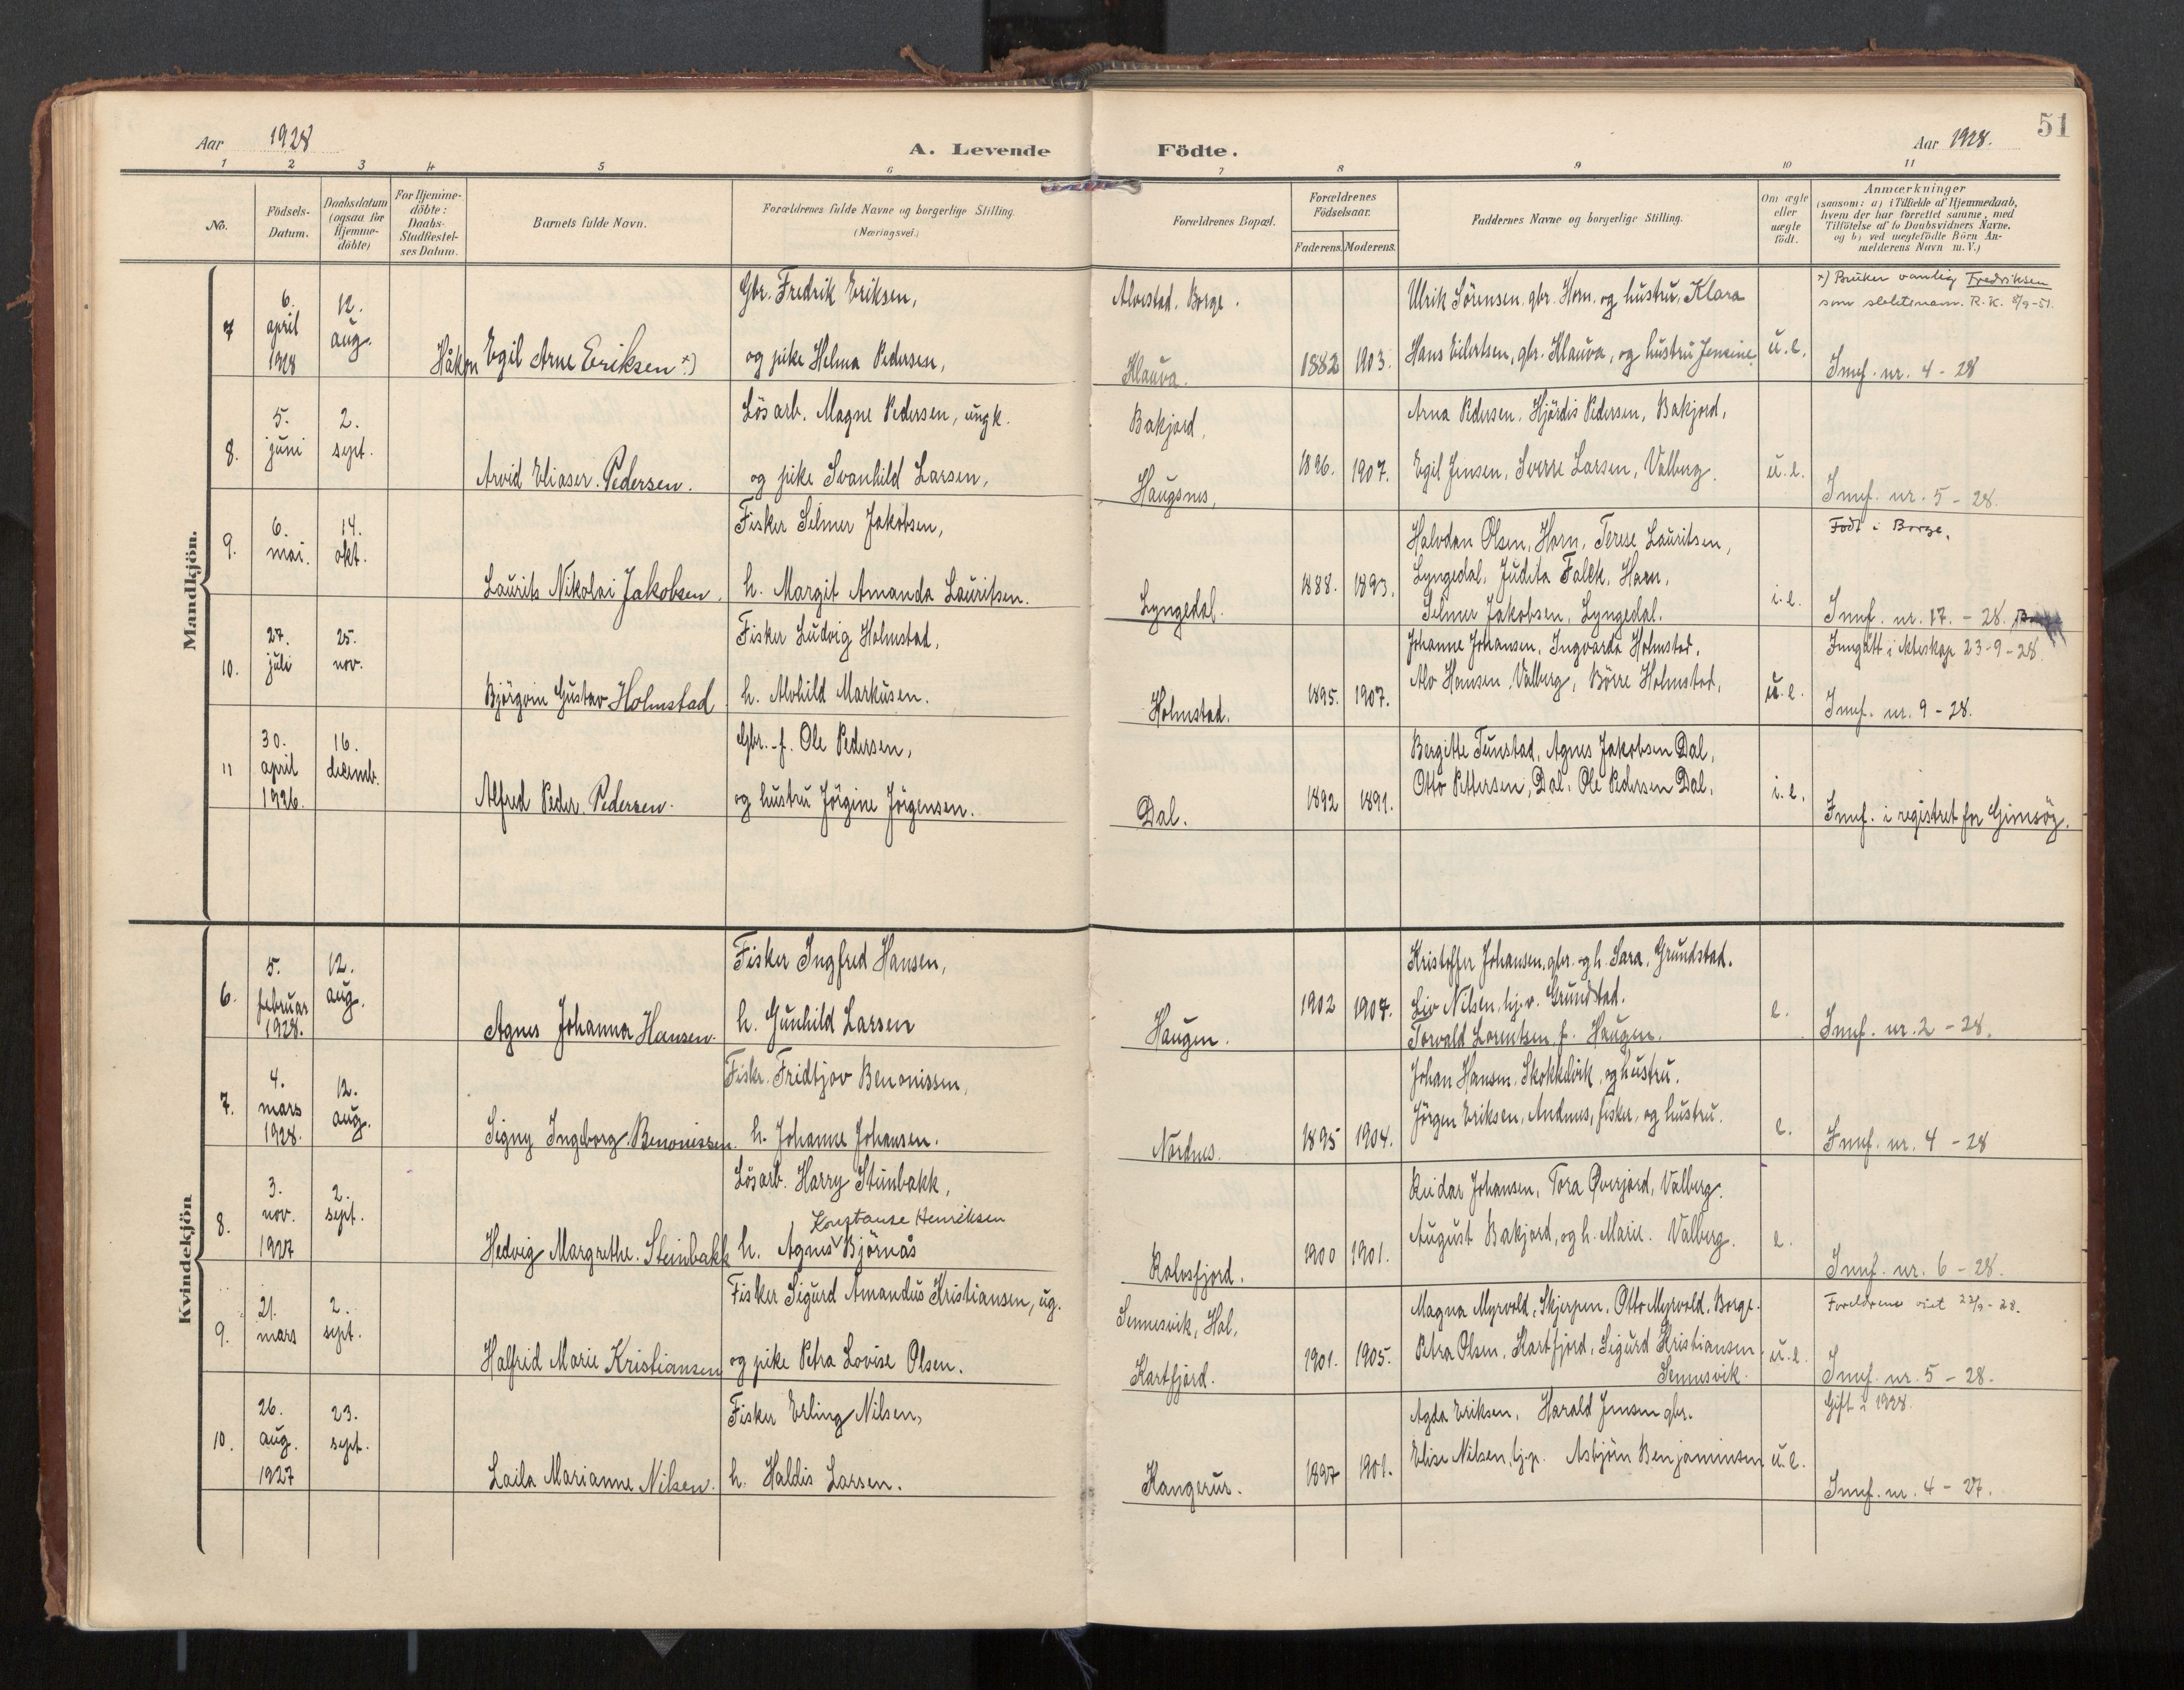 51
Aar 1928
A. Levende Födte.
Aar 1928.
1 2 3 4 5 6 7 8 9 10 11
No.
Födsels-Datum.
Daabsdatum (ogsaa for Hjemme-döbte)
For Hjemme-döbte: Daabs-Stadfæstel-ses Datum.
Barnets fulde Navn.
Forældrenes fulde Navne og borgerlige Stilling.
(Næringsvei.)
Forældrenes Bopæl.
Forældrenes Födselsaar.
Faderens. Moderens.
Faddernes Navne og borgerlige Stilling.
Om ægte eller uægte födt.
Anmærkninger
(saasom: a) i Tilfælde af Hjemmedaab, hvem der har forrettet samme, med Tilföielse af to Daabsvidners Navne. og b) ved uægtefödte Börn An-melderens Navn m. V.)
Mandkjön.
7
6. april 1928
12. aug.
Håkon Egil Arne Eriksen x)
Gbr. Fredrik Eriksen,
og pike Helma Pedersen,
Alvestad, Borge.
Klauva.
1882 1903.
Ulrik Sörensen, gbr. Horn, og hustru, Klara
Hans Eilertsen, gbr. Klauva, og hustru Jensine
u.e.
x) Bruker vanlig Fredriksen
som slektsnavn. R.K. 8/9-51.
Innf. nr. 4 - 28
8.
5. juni
2. sept.
Arvid Eliaser. Pedersen.
Lösarb. Magne Pedersen, ungk.
og pike Svanhild Larsen,
Bakjord,
Haugsnes,
1896. 1907.
Arna Pedersen, Hjördis Pedersen, Bakjord,
Egil Jensen, Sverre Larsen, Valberg.
u.e.
Innf. nr. 5 - 28.
9.
6. mai.
14. okt.
Laurits Nikolai Jakobsen.
Fisker Selmer Jakobsen,
h. Margit Amanda Lauritsen.
Lyngedal.
1888. 1893.
Halvdan Olsen, Horn, Terese Lauritsen,
Lyngedal, Judita Falck, Horn,
Selmer Jakobsen, Lyngedal.
i.e.
Födt i Borge.
Innf. nr. 17. - 28.
10.
27. juli
25. nov.
Björgvin Gustav Holmstad
Fisker Ludvig Holmstad,
h. Alvhild Markusen.
Holmstad.
1895. 1907.
Johanne Johansen, Ingvarda Holmstad,
Alv Hansen, Valberg, Börre Holmstad,
u.e.
Inngått i ekteskap 23-9-28.
Innf. nr. 9 - 28.
11
30. april 1926.
16. decemb.
Alfred Peder. Pedersen.
Gbr.-f. Ole Pedersen,
og hustru Jörgine Jörgensen.
Dal.
1892 1891.
Bergitte Tunstad, Agnes Jakobsen Dal,
Otto Pettersen, Dal, Ole Pedersen Dal.
i.e.
Innf. i registret for Gimsöy.
Kvindekjön
6.
5. februar 1928.
12. aug.
Agnes Johanna Hansen.
Fisker Ingfred Hansen,
h. Gunhild Larsen
Haugen.
1902 1907.
Kristoffer Johansen, gbr. og h. Sara, Grundstad.
Liv Nilsen, hj.v. Grundstad.
Torvald Lorentsen, f. Haugen.
e.
Innf. nr. 2 - 28.
7.
4. mars 1928.
12. aug.
Signy Ingeborg Benonissen.
Fisker. Fridtjov Benonissen,
h. Johanne Johansen.
Nordnes.
1895 1904.
Johan Hansen, Skokkelvik, og hustru.
Jörgen Eriksen, Andnes, fisker, og hustru.
e.
Innf. nr. 4 - 28
8.
3. nov. 1927
2. sept.
Hedvig Margrethe. Steinbakk
Lösarb. Harry Steinbakk,
Konstanse Henriksen
h. Agnes Björnås
Rolvsfjord.
1900 1901.
Reidar Johansen, Tora Øverjord, Valberg.
August Bakjord, og h. Marie. Valberg.
e.
Innf. nr. 6 - 28.
9.
21. mars
2. sept.
Halfrid Marie Kristiansen
Fisker Sigurd Amandus Kristiansen, ug.
og pike Petra Lovise Olsen.
Sennesvik, Hol,
Kartfjord.
1901. 1905.
Magna Myrvold, Skjerpen, Otto Myrvold, Borge.
Petra Olsen, Kartfjord, Sigurd Kristiansen
Sennesvik.
u.e.
Foreldrene viet 23/9-28.
Innf. nr. 5 - 28.
10.
26. aug. 1927
23. sept.
Laila Marianne Nilsen.
Fisker Erling Nilsen,
h. Haldis Larsen.
Kangerur.
1897 1901.
Agda Eriksen, Harald Jensen gbr.
Elise Nilsen, hj.p. Asbjörn Benjaminsen
u.e.
Gift i 1928.
Innf. nr. 4 - 27.